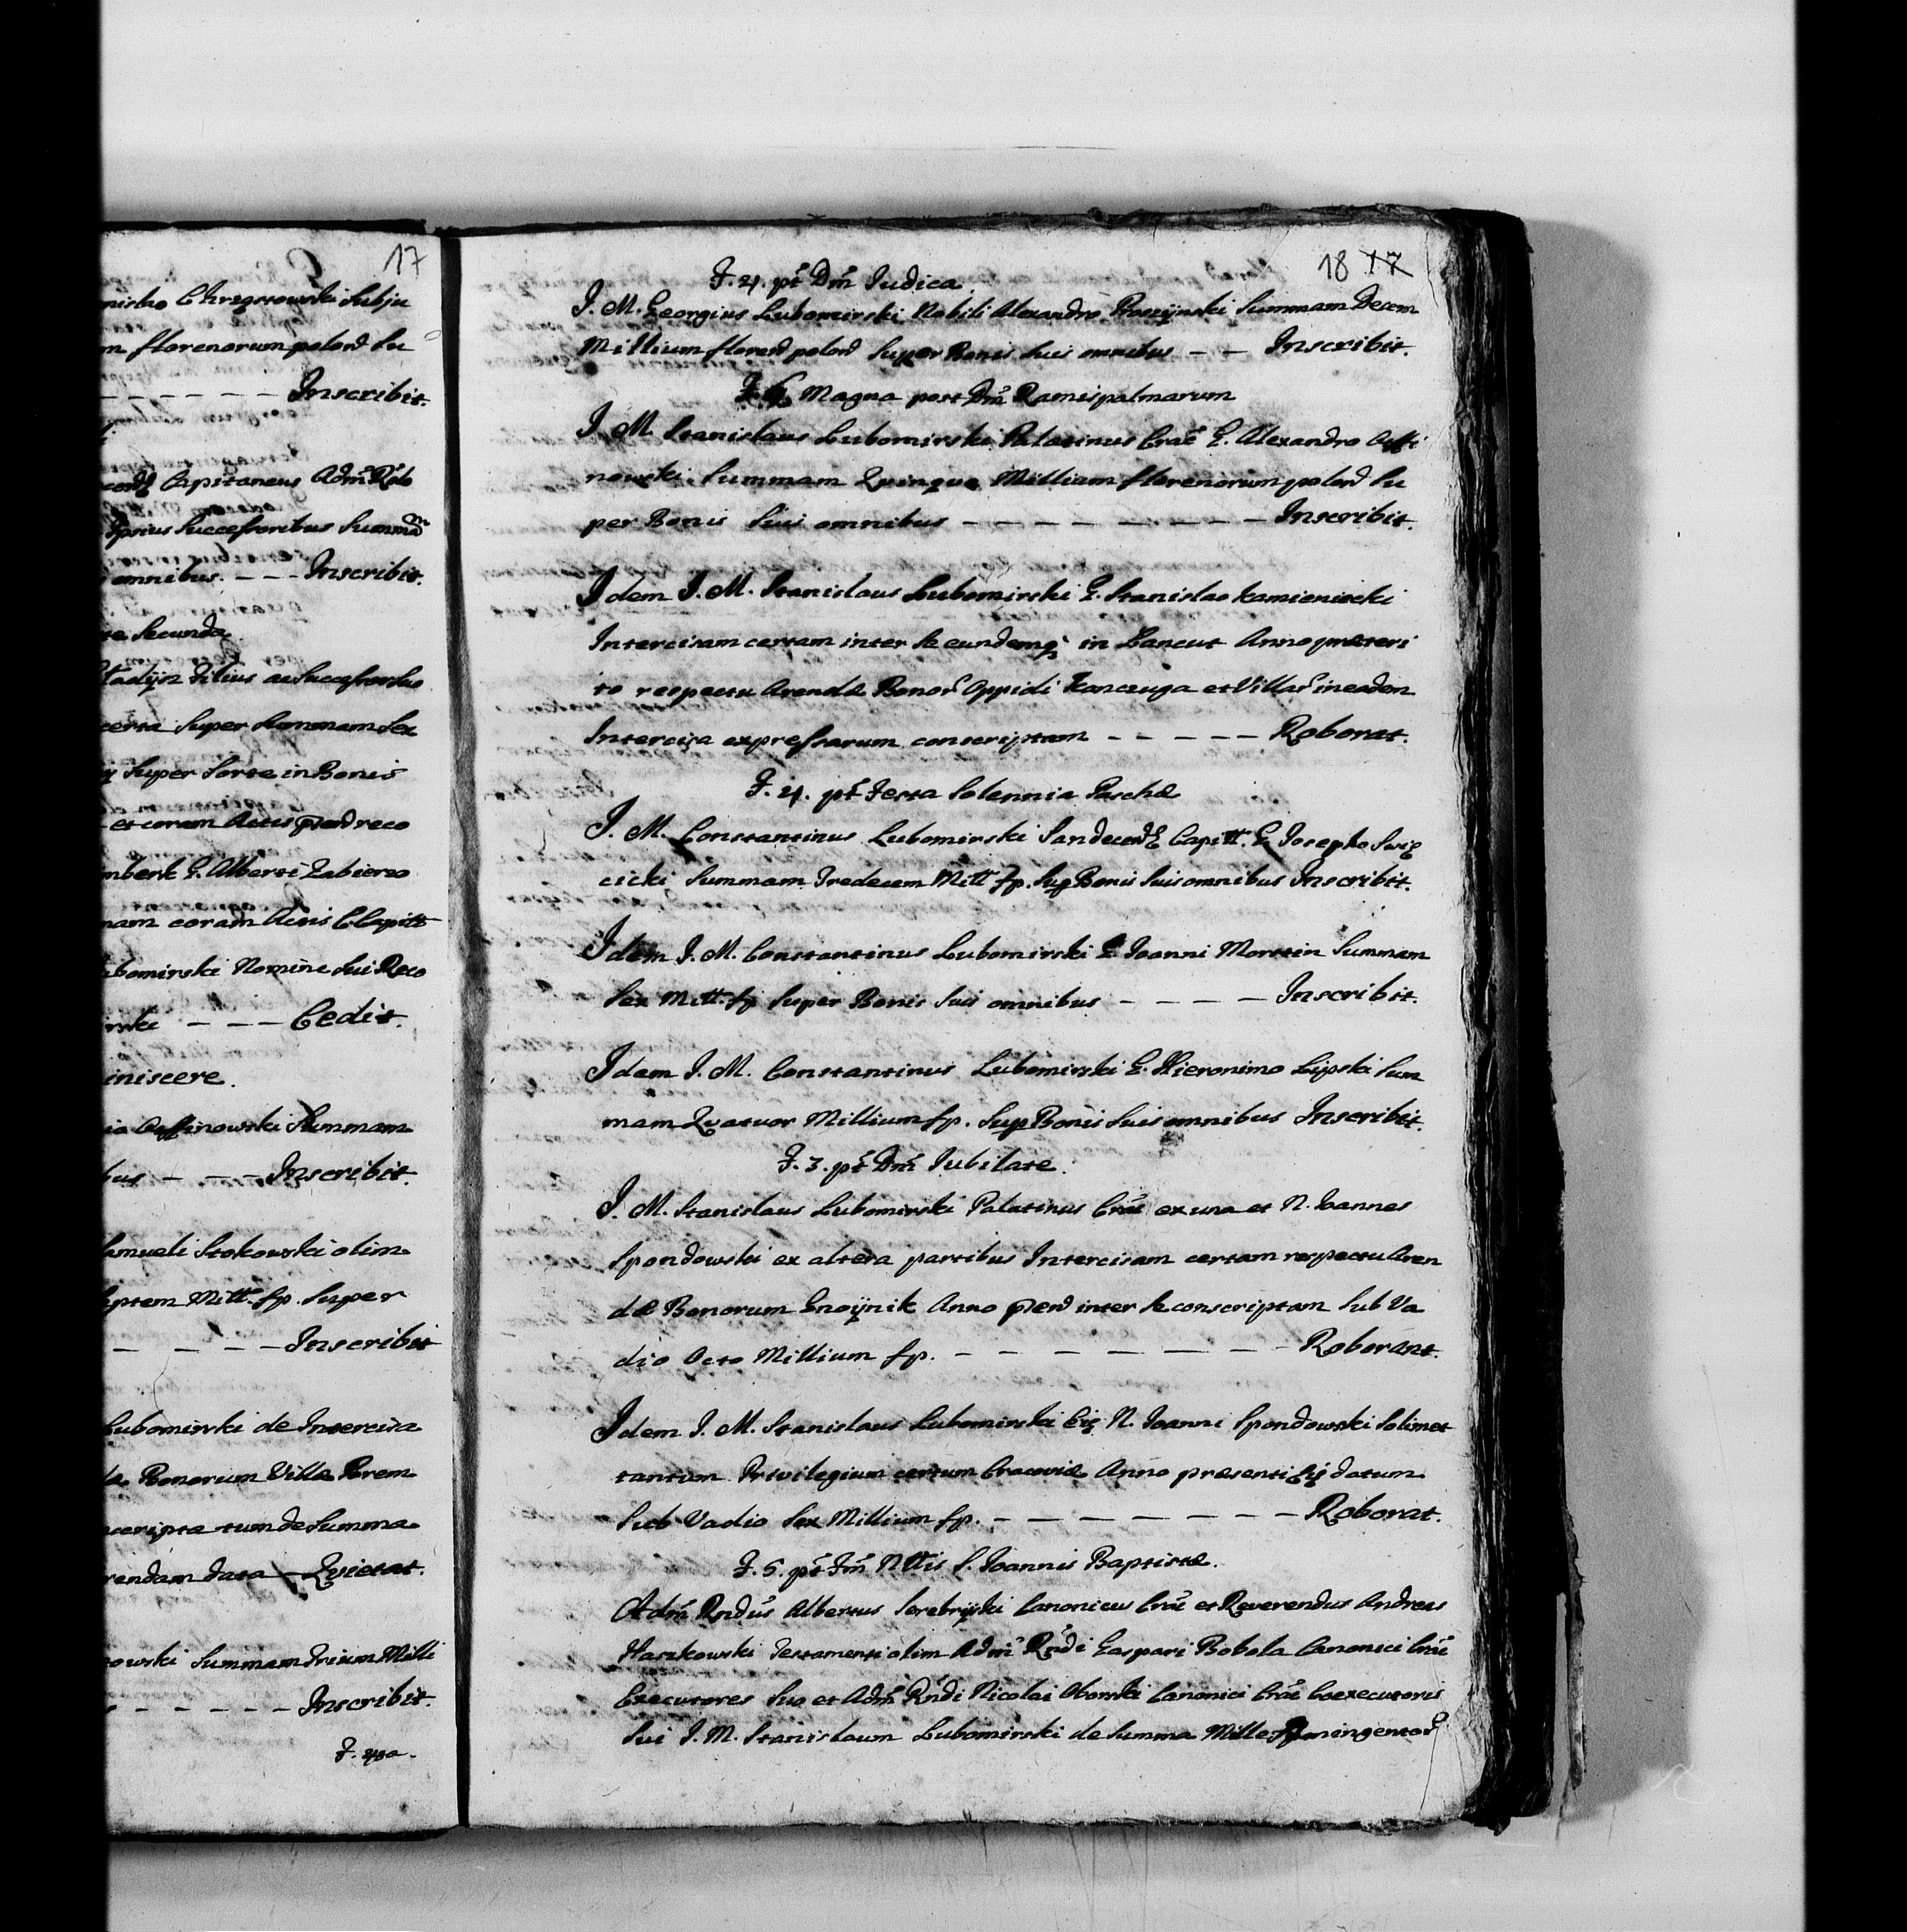 17
nislao Chrząstowski Subju
m florenorum polond Su
Inscribit.
Capitaneus Adm Rdo
Ipsius Successoribus Summam
omnibus. --- Inscribit.
Secunda
Filius ac Successor Suo
certa Super Summam Sex
Super Sorte in Bonis
et coram Actis reco
G. Alberti
nam coram Actis C. Capitt
ubomirski Nomine Sui Reco
rski --- Cedit.
iniscere.
Ossinowski Summam
bus --- Inscribit.
Samueli Stokowski olim
eptem Mill. fp. Super
--- Inscribit
Lubomirski de Intercisa
Bonorum Villæ Brem
scripta tum de Summa
rendam data - Qvietat.
owski Summam Trium Milli
--- Inscribit.
F. 4ta.
18 17
F. 4. pt Dm Iudica.
I. M. Georgius Lubomirski Nobili Alexandro Summam Decem
Millium florend polond Super Bonis Suis omnibus -- Inscribit.
F. 6 Magna post Dm Ramispalmarum
I. M. Stanislaus Lubomirski Palatinus Crac G. Alexandro Ossi
nowski Summam Qvinque Millium florenorum polond Su
per Bonis Suis omnibus --------- Inscribit.
Idem I. M. Stanislaus Lubomirski G. Stanislao Kamieniecki
Intercisam certam inter se eundemq in Lancut Anno præteri
to respectu Arendæ Bonor Oppidi Kanczuga et Villar in eadem
Intercisa expressarum conscriptam ----- Roborat.
F. 4. pt Festa Solennia Paschæ
I. M. Constantinus Lubomirski Sandecen Capitt. G. Iosepho Swię
cicki Summam Tredecem Mill fp. Sup Bonis Suis omnibus Inscribit.
Idem I. M. Constantinus Lubomirski G. Ioanni Morstin Summam
Sex Mill. fp Super Bonis Suis omnibus ---- Inscribit.
Idem I. M. Constantinus Lubomirski G. Hieronimo Lipski Sum
mam Qvatuor Millium fp. Sup Bonis Suis omnibus Inscribit.
F. 3. pt Dm Iubilate.
I. M. Stanislaus Lubomirski Palatinus Crac ex una et N. Ioannes
Spondowski ex altera partibus Intercisam certam respectu Aren
dæ Bonorum Gnoijnik Anno inter se conscriptam Sub Va
dio Octo Millium fp. ------- Roborant.
Idem I. M. Stanislaus Lubomirski N. Ioanni Spondowski
tantum Privilegium certum Cracoviæ Anno præsenti datum
Sub Vadio Sex Millium fp. -------- Roborat.
F. 5. pt Fm Nttis S. Ioannis Baptistæ.
Adm Rndus Albertus Serebrijski Canonicus Crac et Reverendus Andreas
Testamenti olim Adm Rndi Gaspari Bobola Canonici Crac
Executores Suo et Adm Rndi Nicolai Canonici Crac Coexecutoris
Sui I. M. Stanislaum Lubomirski de Summa Mille